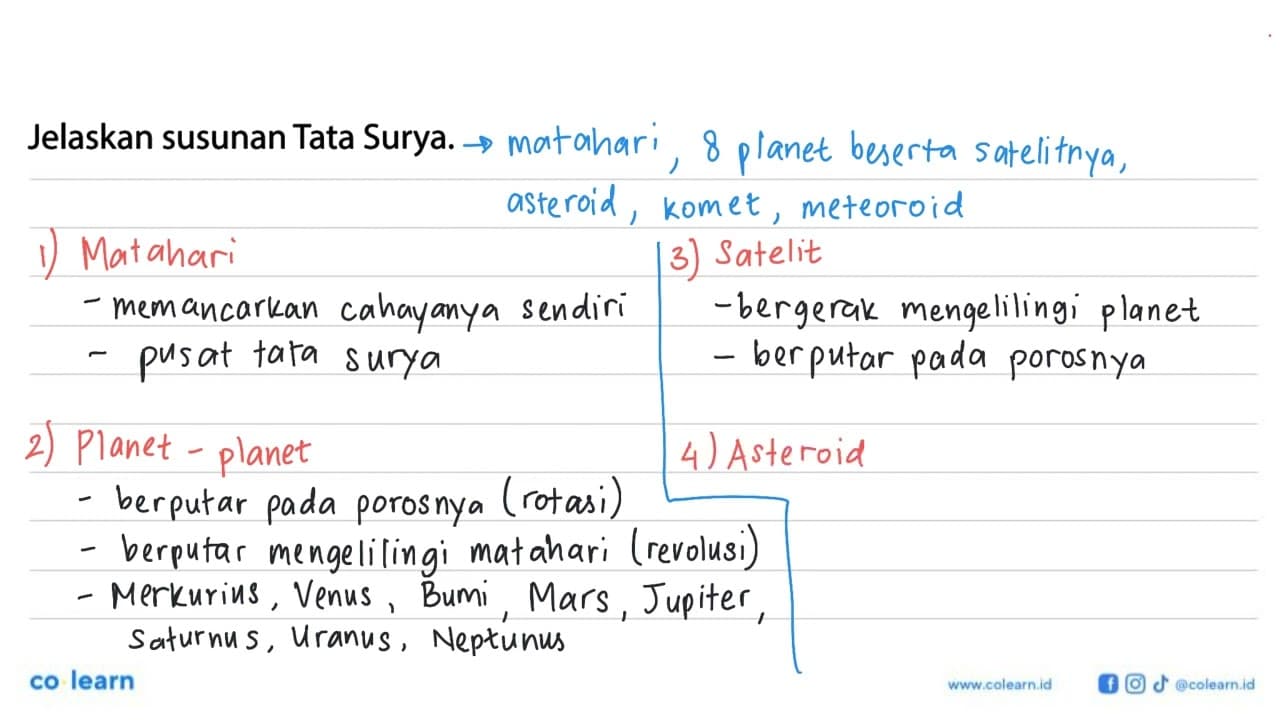 Jelaskan susunan Tata Surya. → matahari, 8 planet beserta satelitnya,
asteroid, komet, meteoroid
1) Matahari
- memancarkan cahayanya sendiri
- pusat tata surya
2) Planet - planet
- berputar pada porosnya (rotasi)
- berputar mengelilingi matahari (revolusi)
- Merkurius, Venus, Bumi, Mars, Jupiter,
Saturnus, Uranus, Neptunus
3) Satelit
- bergerak mengelilingi planet
- berputar pada porosnya
4) Asteroid
co learn
www.colearn.id
@colearn.id